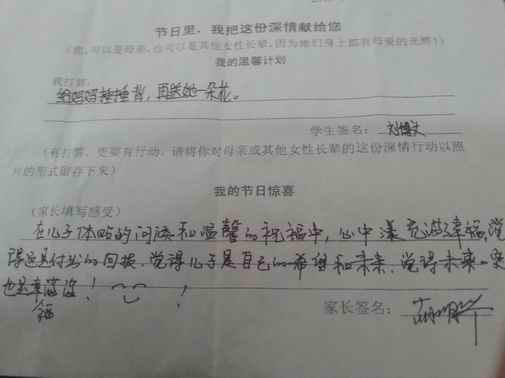 节日里，我把这份深情献给您
（您，可以是母亲，也可以是其他女性长辈，因为她们身上都有母爱的光辉！）
我的温馨计划
我打算：
给妈妈捶捶背，再送她一朵花。
学生签名：
（有打算，更要有行动，请将你对母亲或其他女性长辈的这份深情行动以照
片的形式留存下来）
我的节日惊喜
（家长填写感受）
在儿子体贴的问候和温馨的祝福中，心中漾充满幸福，觉
得这是付出的回报，觉得儿子是自己的希望和未来，觉得未来一定
也是幸福
！ ！
家长签名：